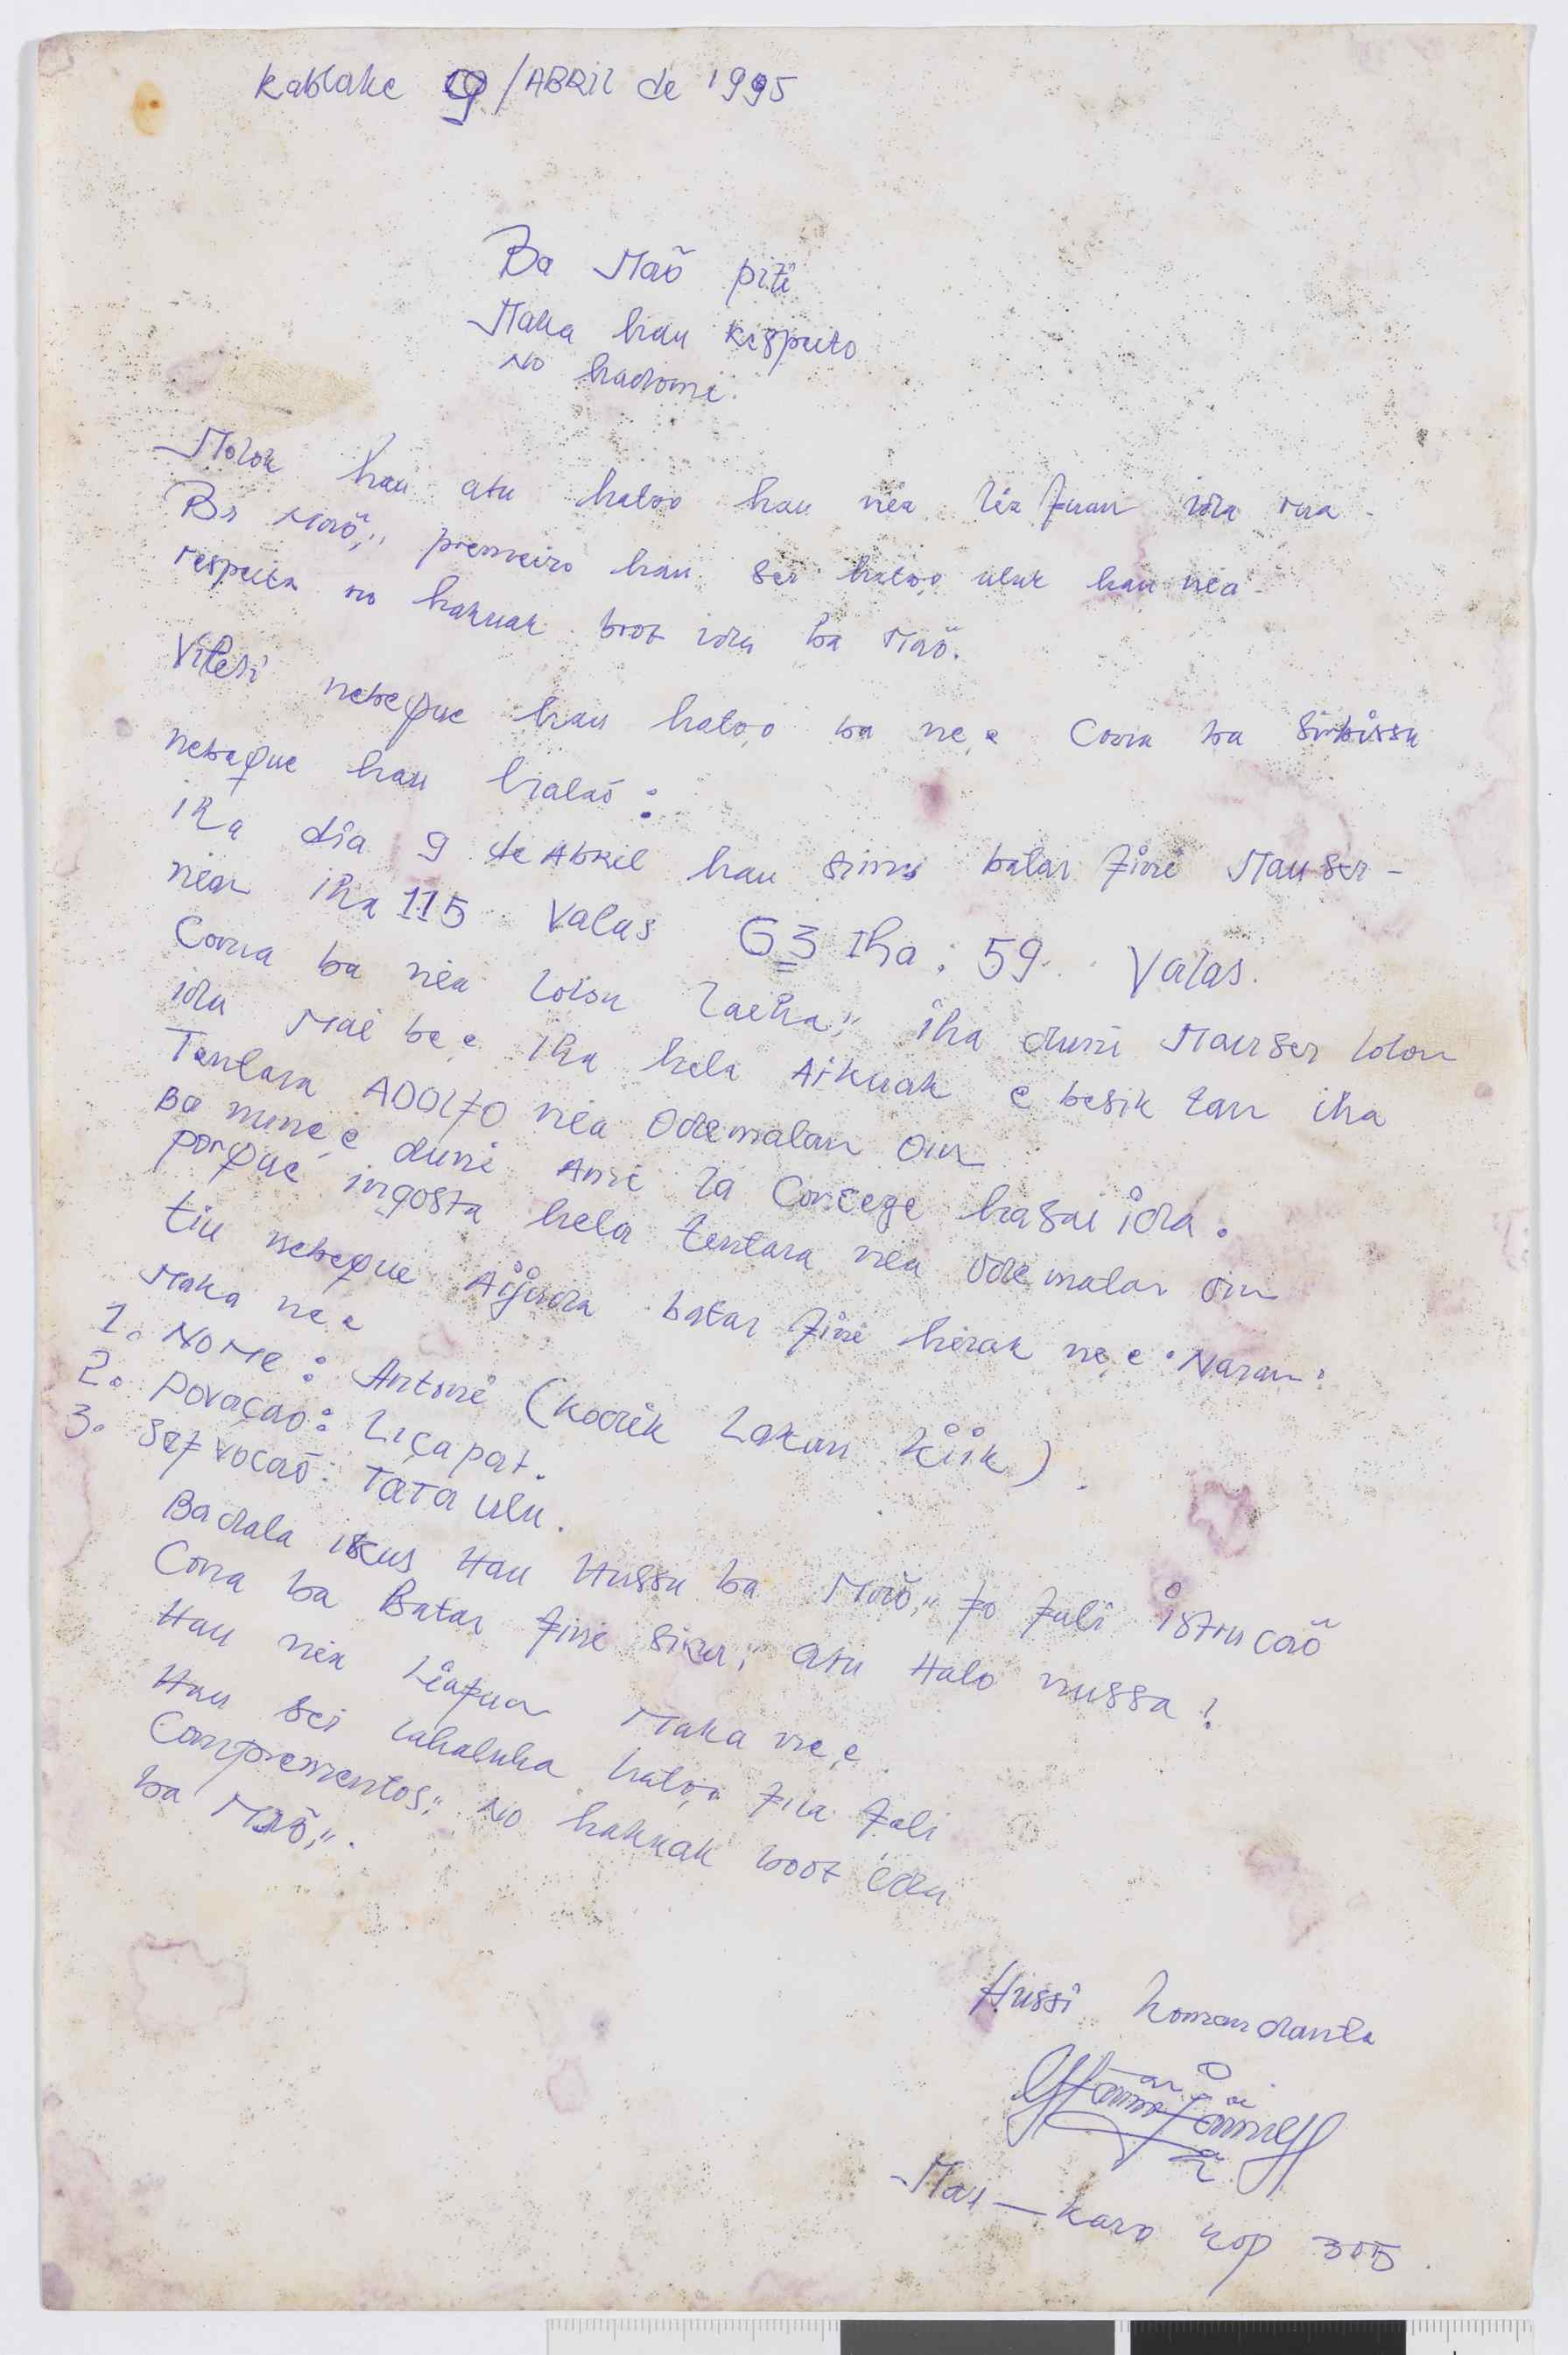 Kablake 9/ABRIL de 1995
Ba Maõ piti
Maka hau Respeito
No hadomi.
Molok hau atu hatoo hau nia lia fuan ida rua -
Ba Maõ,,, premeiro hau sei hatoo uluk hau nia -
respeita no hakuak boot ida ba Maõ.
nebeque hau hatoo ba ne,e Cona ba Sirbissu
nebeque hau halaõ :
iha dia 9 de Abril hau simu batar fini Mauser -
nian iha 115 Valas G3 Iha : 59. Valas.
Cona ba nia lolon laiha,,, iha duni Mauser lolon
ida Mai be,e iha hela Aikuak e besik tan iha
Tentara ADOLFO nia Odamalan oin
Ba mune,e duni Ami la Concege hasai ida.
porque ingosta hela tentara nia Odamatan oin
tiu nebeque Aijuda batar fini hirak ne,e Naran :
Maka ne,e
1. NOMe : Antoni (Kodik Lakan Kiik).
2. Povaçao : Liçapat.
3. Sefvocaõ : TaTa ulu.
Ba dala ikus Hau Hussu ba Maõ,,, fo fali istrucaõ
Cona ba Batar fini sira,,, atu Halo nussa !
Hau nia Liafuan Maka ne,e
Hau sei lahaluha hatoo fila fali
Comprementos,,, No hakuak boot ida
ba Maõ,,,.
Hussi Komandanta
Mau — karo kop 305.